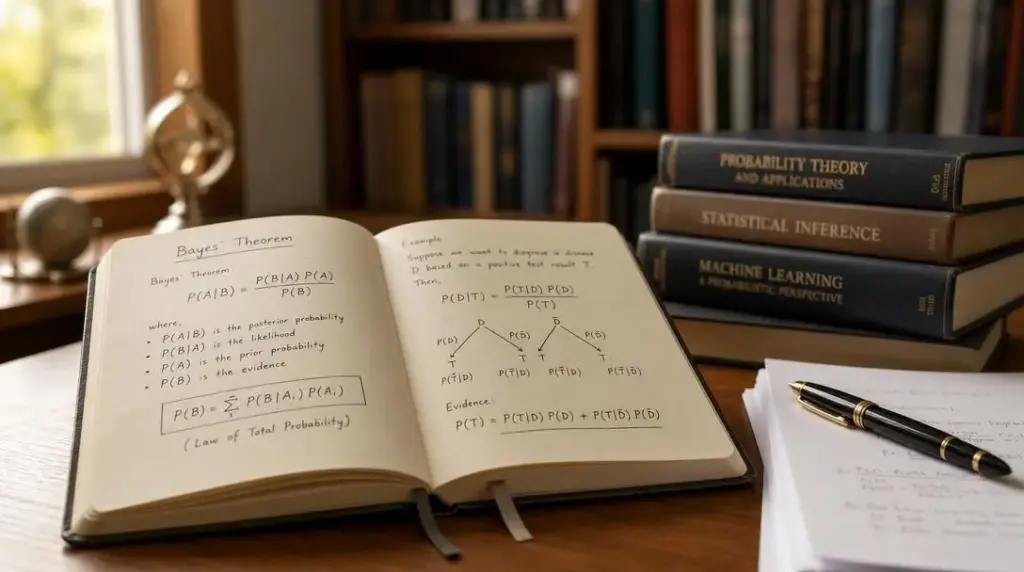 Bayes' Theorem
Bayes' Theorem
P(A|B) = P(B|A) P(A) / P(B)
where,
• P(A|B) is the posterior probability
• P(B|A) is the likelihood
• P(A) is the prior probability
• P(B) is the evidence
P(B) = ∑ P(B|Aᵢ) P(Aᵢ)
(Law of Total Probability)
Example
Suppose we want to diagnose a disease
D based on a positive test result T.
Then,
P(D|T) = P(T|D) P(D) / P(T)
D D̄
P(D) P(D̄) P(D̄)
T T T T
P(T̄|D) P(T̄|D) P(T̄|D) P(T̄|D̄)
Evidence:
P(T) = P(T|D) P(D) + P(T|D̄) P(D̄)
PROBABILITY THEORY
AND APPLICATIONS
STATISTICAL INFERENCE
MACHINE LEARNING
A PROBABILISTIC PERSPECTIVE